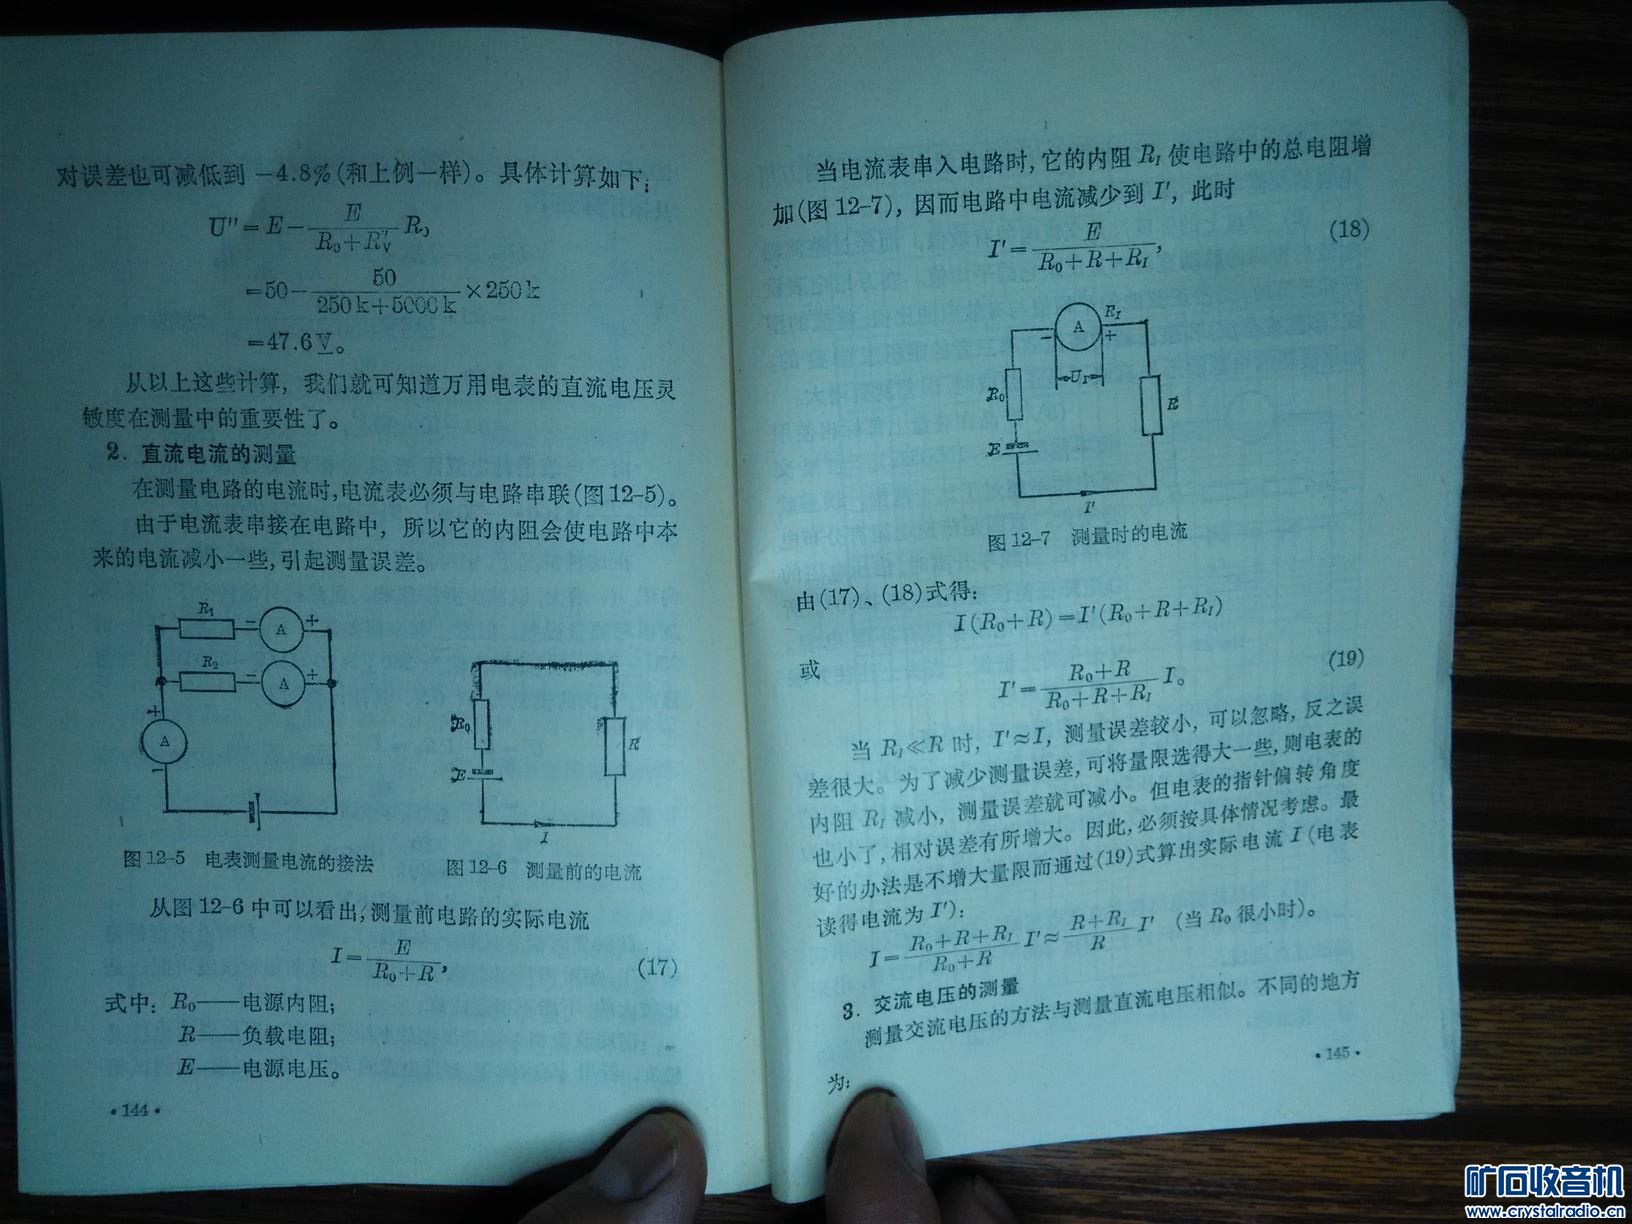 对误差也可减低到 -4.8%(和上例一样)。具体计算如下：
U″=E-E/(R₀+R″ᵥ) R₀
=50-50/(250k+5000k)×250k
=47.6V。
从以上这些计算，我们就可知道万用电表的直流电压灵
敏度在测量中的重要性了。
2. 直流电流的测量
在测量电路的电流时,电流表必须与电路串联(图12-5)。
由于电流表串接在电路中，所以它的内阻会使电路中本
来的电流减小一些,引起测量误差。
R₁ - A +
R₂ - A +
+ A -
图12-5 电表测量电流的接法
R₀ R
E
I
图12-6 测量前的电流
从图12-6中可以看出,测量前电路的实际电流
I=E/(R₀+R), (17)
式中：R₀——电源内阻；
R——负载电阻；
E——电源电压。
·144·
当电流表串入电路时,它的内阻 R_I 使电路中的总电阻增
加(图12-7)，因而电路中电流减少到 I′，此时
I′=E/(R₀+R+R_I), (18)
A R_I
- +
U_I
R₀ R
E
I′
图12-7 测量时的电流
由(17)、(18)式得：
I(R₀+R)=I′(R₀+R+R_I)
或
I′=(R₀+R)/(R₀+R+R_I) I。 (19)
当 R_I≪R 时，I′≈I，测量误差较小，可以忽略，反之误
差很大。为了减少测量误差,可将量限选得大一些,则电表的
内阻 R_I 减小，测量误差就可减小。但电表的指针偏转角度
也小了,相对误差有所增大。因此,必须按具体情况考虑。最
好的办法是不增大量限而通过(19)式算出实际电流 I(电表
读得电流为 I′)：
I=(R₀+R+R_I)/(R₀+R) I′≈(R+R_I)/R I′ (当 R₀ 很小时)。
3. 交流电压的测量
测量交流电压的方法与测量直流电压相似。不同的地方
为：
·145·
矿石收音机
www.crystalradio.cn